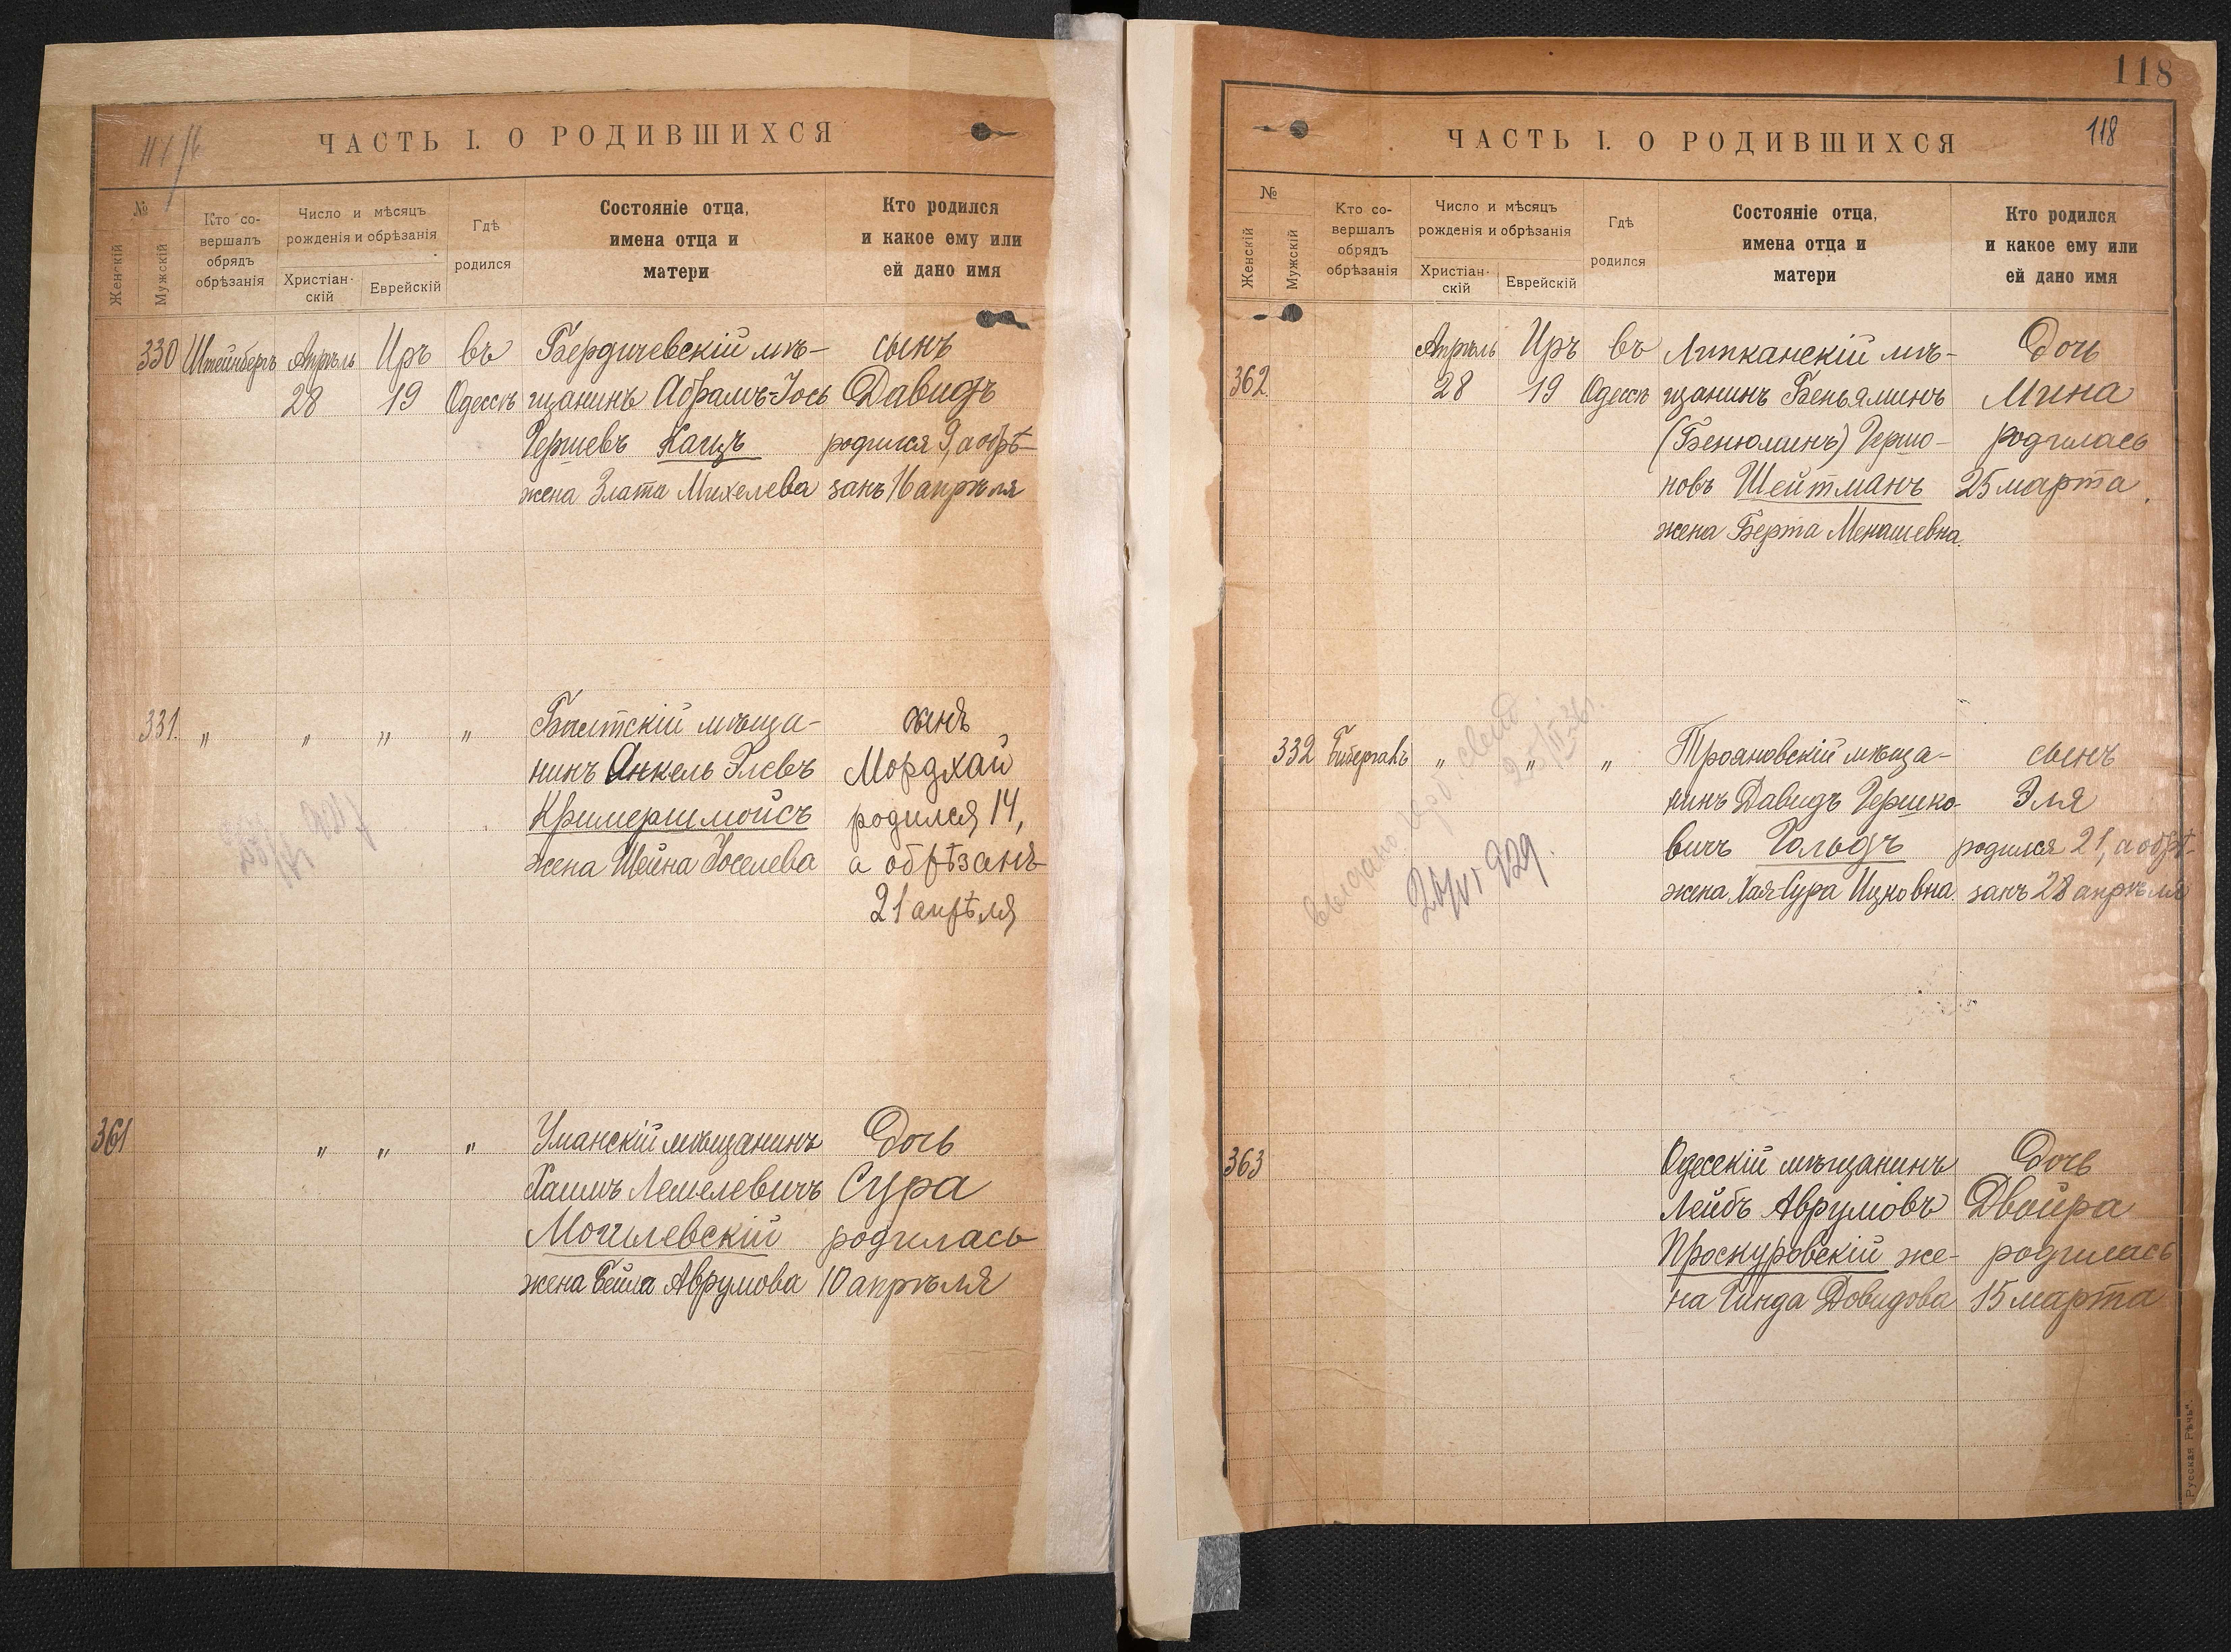 ЧАСТЬ I. О РОДИВШИХСЯ
№
Женскій
Мужскій
Кто со-
вершалъ
обрядъ
обрѣзанія
Число и мѣсяцъ
рожденія и обрѣзанія
Христіан-
скій
Еврейскій
Гдѣ
родился
Состояніе отца,
имена отца и
матери
Кто родился
и какое ему или
ей дано имя
330 Штейнбергъ Апрѣль Иръ въ Бердичевскій мѣ- сынъ
28 19 Одессѣ щанинъ Абрамъ-Іось Давидъ
Гершевъ Кацъ родился 9, а обрѣ-
жена Злата Михелева занъ 16 апрѣля
331. " " " " Балтскій мѣща- сынъ
нинъ Янкель Элевъ Мордхай
Кримершмойсъ родился 14,
жена Шейна Іоселева а обрѣзанъ
21 апрѣля
361 " " " Уманскій мѣщанинъ Дочь
Хаимъ Лемелевичъ Сура
Могилевскій родилась
жена Бейла Аврумова 10 апрѣля
118
118
ЧАСТЬ I. О РОДИВШИХСЯ
№
Женскій
Мужскій
Кто со-
вершалъ
обрядъ
обрѣзанія
Число и мѣсяцъ
рожденія и обрѣзанія
Христіан-
скій
Еврейскій
Гдѣ
родился
Состояніе отца,
имена отца и
матери
Кто родился
и какое ему или
ей дано имя
Апрѣль Иръ въ Липканскій мѣ- Дочь
362. 28 19 Одессѣ щанинъ Беньяминъ Мина
(Бенюминъ) Гершо- родилась
новъ Шейтманъ 25 марта.
жена Берта Менашевна.
332 Бибергалъ " " " Трояновскій мѣща- сынъ
нинъ Давидъ Гершко- Эля
вичъ Гольдъ родился 21, а обрѣ-
жена Хая-Сура Ицковна. занъ 28 апрѣля
выдано свид.
929.
363 Одесскій мѣщанинъ Дочь
Лейбъ Аврумовъ Двойра
Проскуровскій же- родилась
на Гинда Довидова 15 марта
Русская Рѣчь".